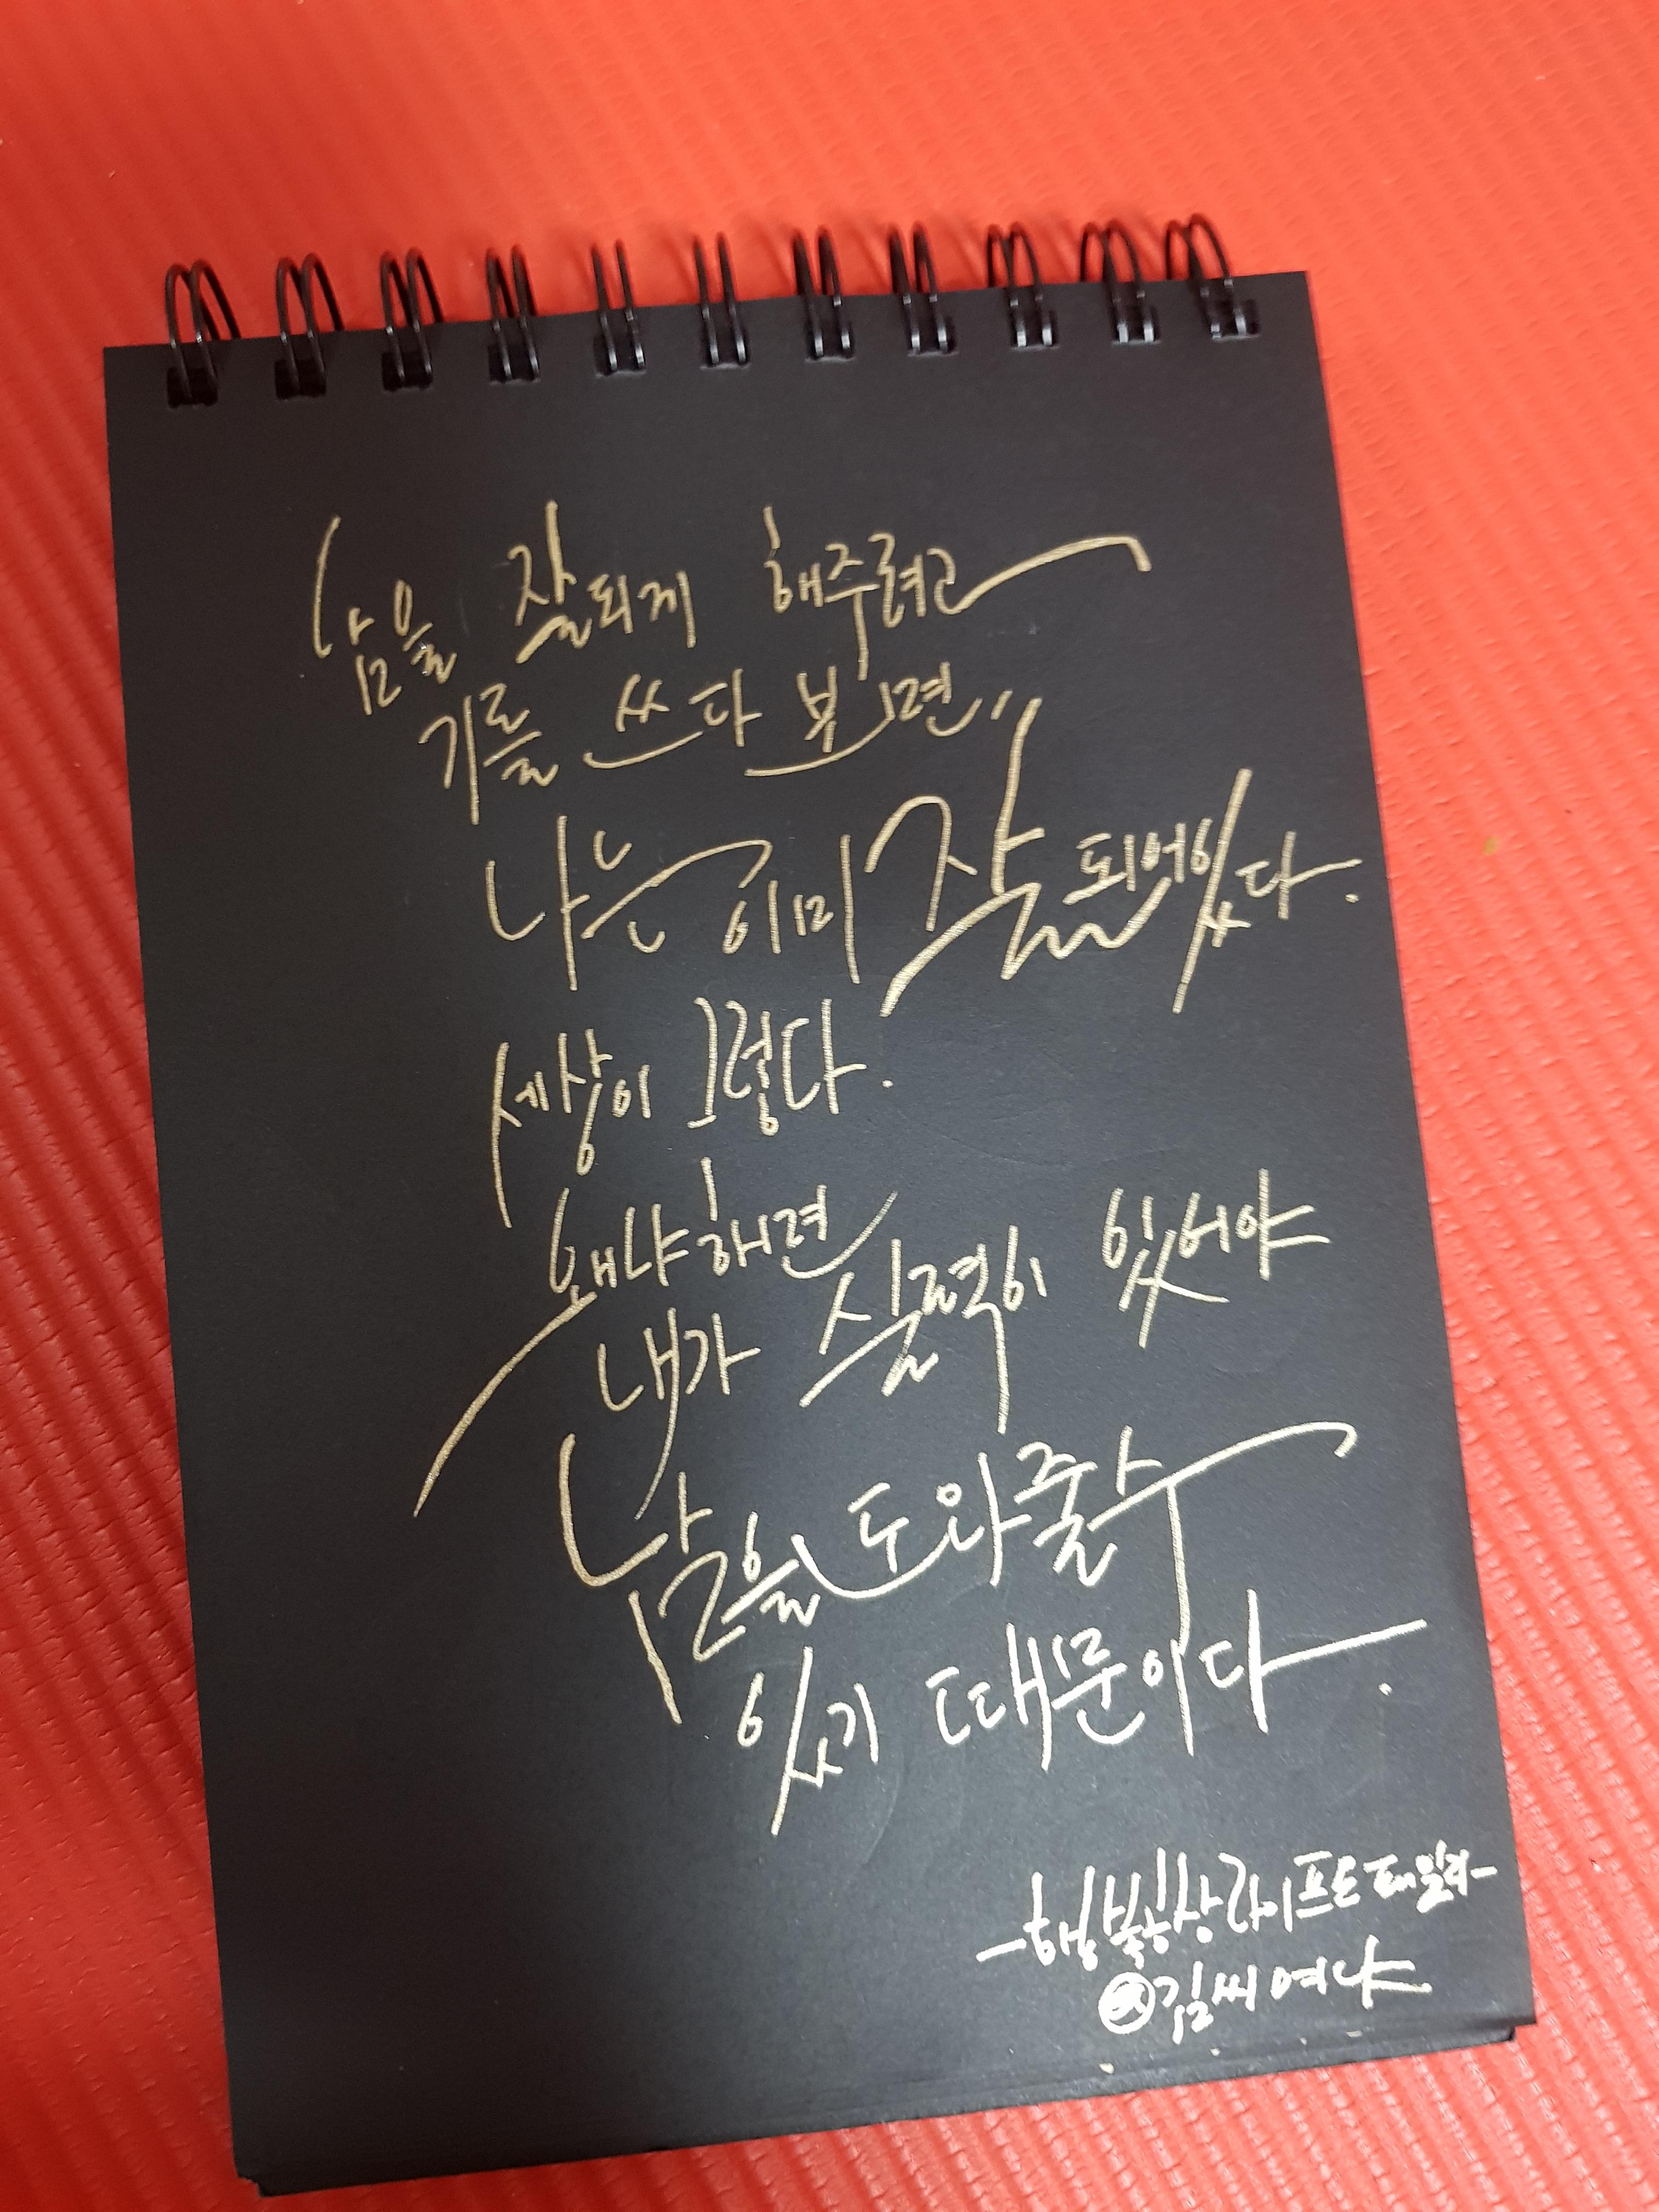 남을 잘되게 해주려고
기를 쓰다 보면,,
나는 이미 잘 되어있다.
세상이 그렇다.
왜냐하면
내가 실력이 있어야
남을 도와줄수
있기 때문이다.
-행복형상라이프트테일러-
김씨여나